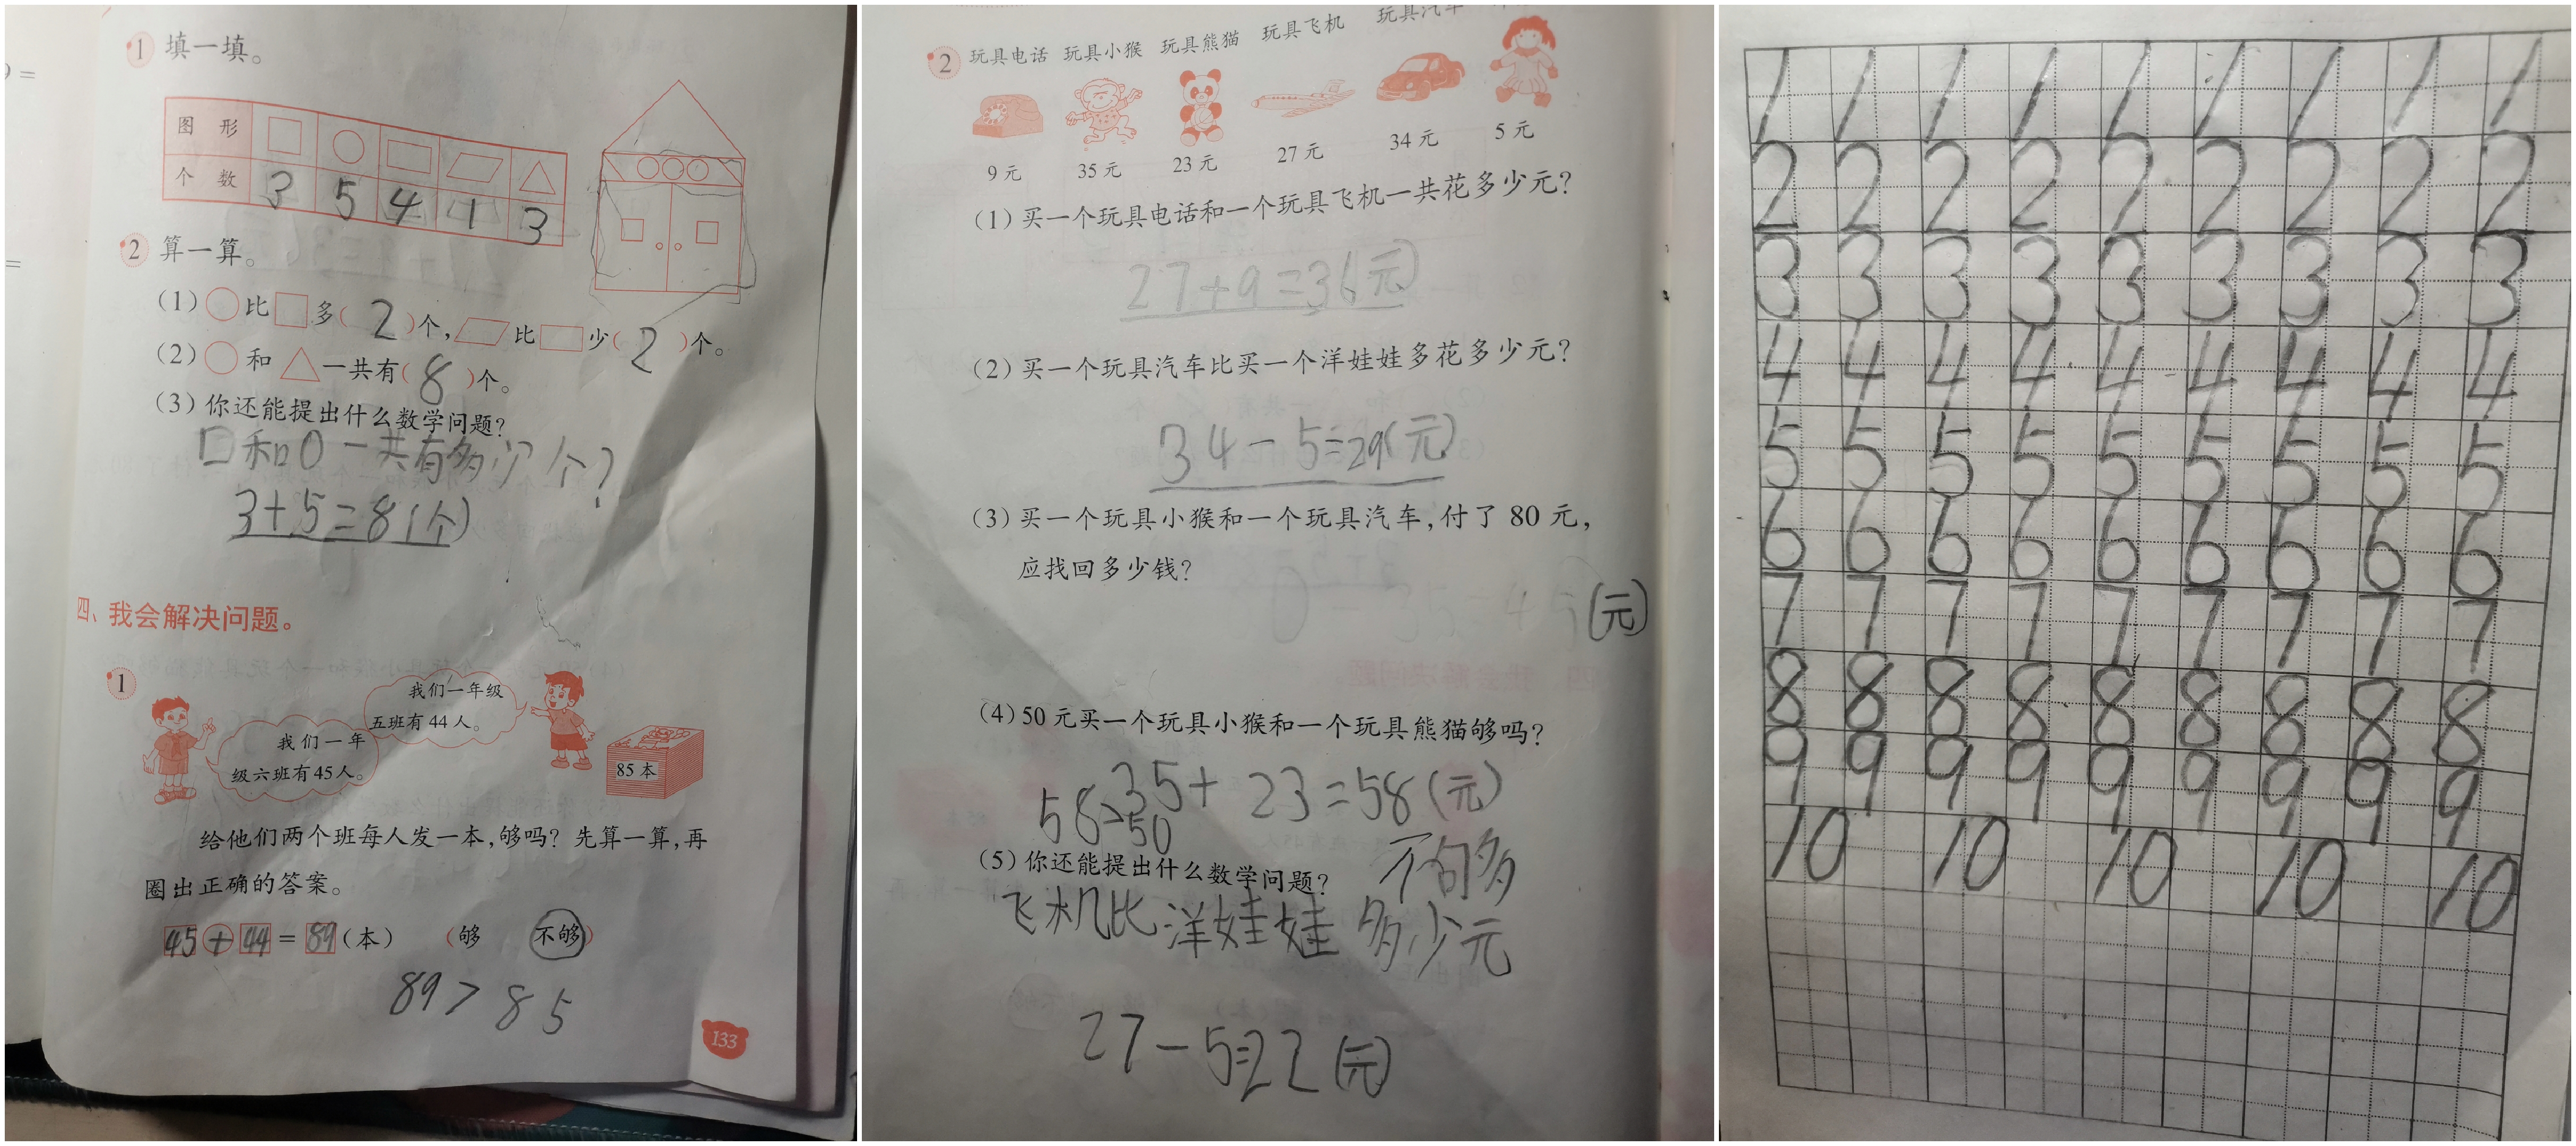 9 =
=
1 填一填。
图 形
个 数 3 5 4 1 3
2 算一算。
(1) ○比□多( 2 )个,▱比▭少( 2 )个。
(2) ○和△一共有( 8 )个。
(3) 你还能提出什么数学问题?
□和○一共有多少个?
3+5=8(个)
四、我会解决问题。
1
我们一年级
五班有44人。
我们一年
级六班有45人。
85本
给他们两个班每人发一本,够吗? 先算一算,再
圈出正确的答案。
45+44=89(本) (够 不够)
89>85
133
2 玩具电话 玩具小猴 玩具熊猫 玩具飞机 玩具汽车
9元 35元 23元 27元 34元 5元
(1) 买一个玩具电话和一个玩具飞机一共花多少元?
27+9=36元
(2) 买一个玩具汽车比买一个洋娃娃多花多少元?
34-5=29(元)
(3) 买一个玩具小猴和一个玩具汽车,付了80元,
应找回多少钱?
35=45(元)
(4) 50元买一个玩具小猴和一个玩具熊猫够吗?
35+23=58(元)
58>50
(5) 你还能提出什么数学问题?
飞机比洋娃娃多少元
27-5=22(元)
1 1 1 1 1 1 1 1 1
2 2 2 2 2 2 2 2 2
3 3 3 3 3 3 3 3 3
4 4 4 4 4 4 4 4 4
5 5 5 5 5 5 5 5 5
6 6 6 6 6 6 6 6 6
7 7 7 7 7 7 7 7 7
8 8 8 8 8 8 8 8 8
9 9 9 9 9 9 9 9 9
10 10 10 10 10